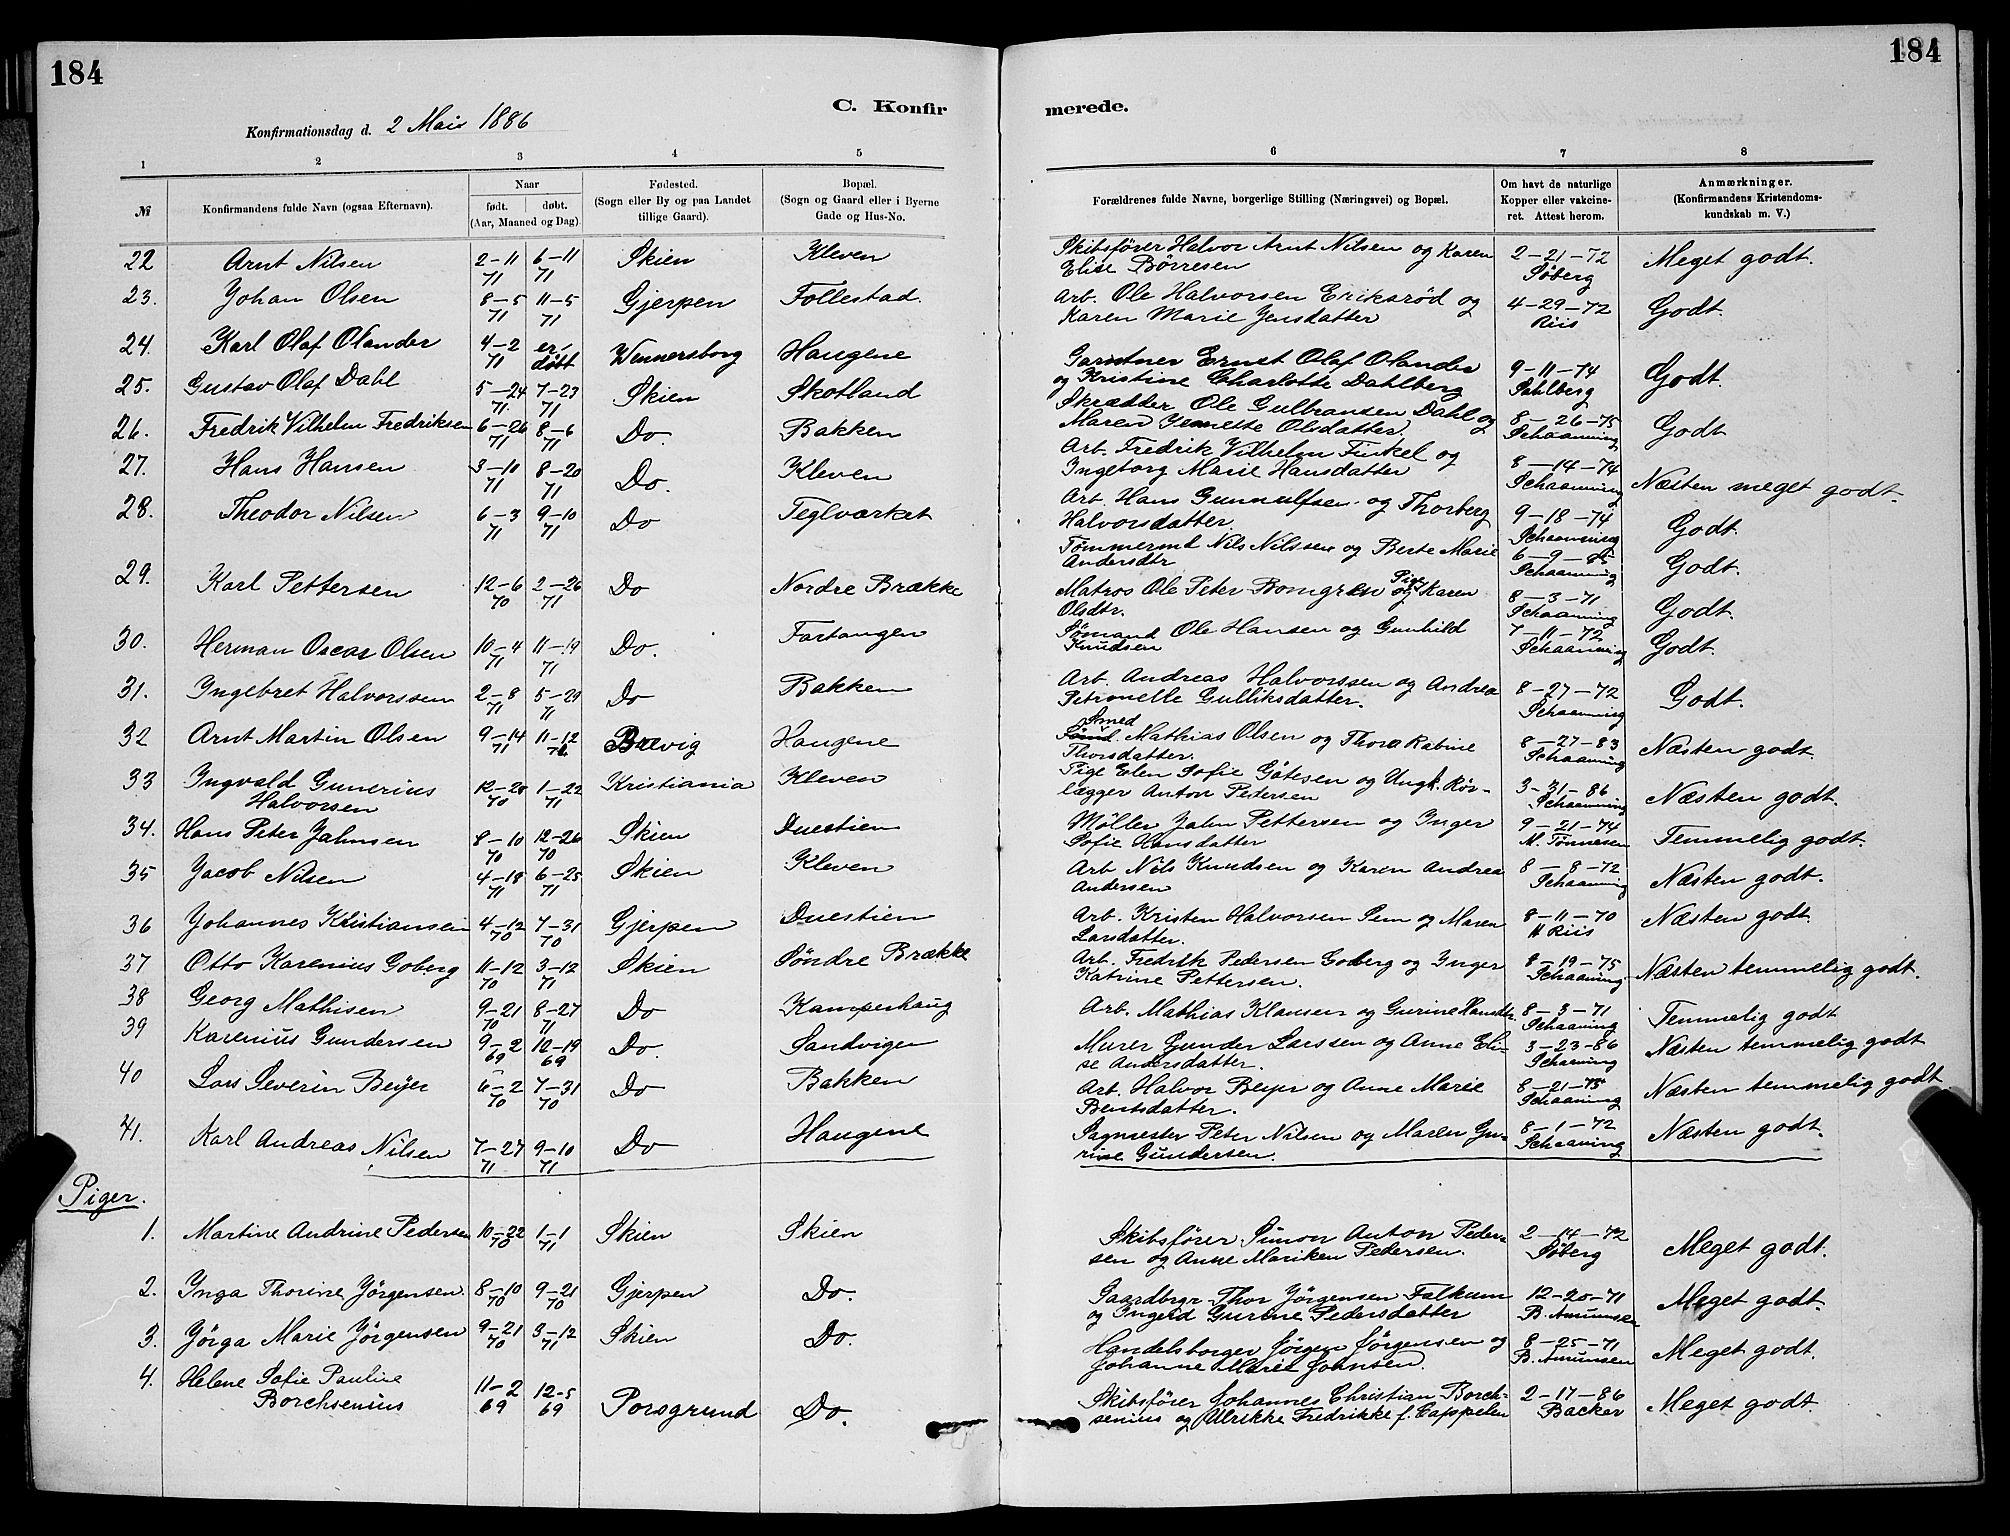 184
184
C. Konfir
merede.
Konfirmationsdag d. 2 Mais 1886
1 2 3 4 5 6 7 8
№
Konfirmandens fulde Navn (ogsaa Efternavn).
Naar
født. døbt.
(Aar, Maaned og Dag).
Fødested.
(Sogn eller By og paa Landet
tillige Gaard).
Bopæl.
(Sogn og Gaard eller i Byerne
Gade og Hus-No.
Forældrenes fulde Navne, borgerlige Stilling (Næringsvei) og Bopæl.
Om havt de naturlige
Kopper eller vakcine-
ret. Attest herom.
Anmærkninger.
(Konfirmandens Kristendoms-
kundskab m. V.)
22 Arnt Nilsen 2-11 71 6-11 71 Skien Kleven Skibsfører Halvor Arnt Nilsen og Karen
Elise Børresen 2-21-72 Søberg Meget godt.
23. Johan Olsen 8-5 71 11-5 71 Gjerpen Follestad. Arb. Ole Halvorsen Eriksrød og
Karen Marie Jensdatter 4-29-72 Riis Godt.
24. Karl Olaf Olander 4-2 71 er døbt Wennersborg Haugene Gartner Ernst Olaf Olander
og Kristine Charlotte Dahlberg 9-11-74 Dahlberg Godt.
25. Gustav Olaf Dahl 5-24 71. 7-23 71 Skien Skotland Skrædder Ole Gulbransen Dahl og
Maren Jennette Olsdatter. 8-26-75 Schaanning Godt
26. Fredrik Vilhelm Fredriksen 6-26 71 8-6 71 Do. Bakken Arb. Fredrik Vilhelm Finkel og
Ingeborg Marie Hansdatter 8-14-74 Schaanning Næsten meget godt.
27. Hans Hansen 3-10 71 8-20 71 Do. Kleven Arb. Hans Gunnulfsen og Thorberg
Halvorsdatter. 9-18-74 Schaanning Godt.
28. Theodor Nilsen 6-3 71 9-10 71 Do Teglværket Tømmermd Nils Nilssen og Berte Marie
Andersdtr 6-9-85 Schaanning Godt.
29. Karl Pettersen 12-6 70 2-26 71 Do Nordre Brække Matros Ole Peter Bomgren og Pige Karen
Olsdtr. 8-3-71 Schaanning Godt.
30. Herman Oscar Olsen 10-4 71 11-19 71 Do. Fartangen Sømand Ole Hansen og Gunhild
Knudsen 7-11-72 Schaanning Godt.
31. Ingebret Halvorssen 2-8 71 5-29 71 Do Bakken Arb. Andreas Halvorssen og Andrea
Petronelle Gulliksdatter. 8-27-72 Schaanning Godt.
32 Arnt Martin Olsen 9-14 71 11-12 71 Brevig Haugene Smed Mathias Olsen og Thora Rabine
Thorsdatter. 8-27-83 Schaanning Næsten godt.
33 Ingvald Gunerius
Halvorsen 12-28 70 1-22 71 Kristiania Kleven Pige Elen Sofie Gøtesen og Ungk. Rør-
lægger Anton Pedersen 3-31-86 Schaanning Næsten godt.
34. Hans Peter Jahnsen 8-10 70 12-26 70 Skien Duestien Møller Jahn Pettersen og Inger
Sofie Hansdatter 9-21-74 M. Tønnesen Temmelig godt.
35 Jacob Nilsen 4-18 71 6-25 71 Skien Kleven Arb Nils Knudsen og Karen Andrea
Andersen 8-8-72 Schaanning Næsten godt.
36 Johannes Kristiansen 4-12 70 7-31 70 Gjerpen Duestien Arb. Kristen Halvorsen Sem og Maren
Larsdatter. 8-11-70 H Riis Næsten godt.
37 Otto Karenius Goberg 11-12 70 3-12 71 Skien Søndre Brække Arb. Fredrik Pedersen Goberg og Inger
Katrine Pettersen. 8-19-75 Schaanning. Næsten temmelig godt.
38 Georg Mathisen 9-21 70 8-27 71 Do Kamperhaug Arb. Mathias Klausen og Gurine Hansdtr. 8-3-71 Schaaning Temmelig godt
39 Karenius Gundersen 9-2 69 12-19 69 Do. Sandvigen Murer Gunder Larssen og Anne Eli-
se Andersdatter. 3-23-86 Schaning Næsten temmelig godt
40 Lars Severin Beyer 6-2 70 7-31 70 Do Bakken Arb. Halvor Beyer og Anne Marie
Bentsdatter. 8-21-75 Schaanning Næsten temmelig godt
41. Karl Andreas Nilsen 7-27 71 9-10 71 Do Haugene Sagmester Peter Nilsen og Maren Gu-
rine Gundersen. 8-1-72 Schaaning Næsten godt.
Piger.
1. Martine Andrine Pedersen 10-22 70 1-1 71 Skien Skien Skibsfører Simon Anton Peder-
sen og Anne Mariken Pedersen. 2-14-72 Søberg Meget godt.
2. Inga Thorine Jørgensen 8-10 70 9-21 70 Gjerpen Do. Gaardbrgr Thor Jørgensen Falkum
og Ingerd Gurine Pedersdatter 12-20-71 B. Amunsen Meget godt.
3. Jørga Marie Jørgensen 9-21 70 3-12 71 Skien Do. Handelsborger Jørgen Jørgensen og
Johanne Marie Joensen. 8-25-71 B. Amunsen Meget godt.
4. Helene Sofie Pauline
Borchsenius 11-2 69 12-5 69 Porsgrund Do. Skibsfører Johannes Christian Borch-
senius og Ulrikke Fredrikke f. Cappelen 2-17-86 Backer Meget godt